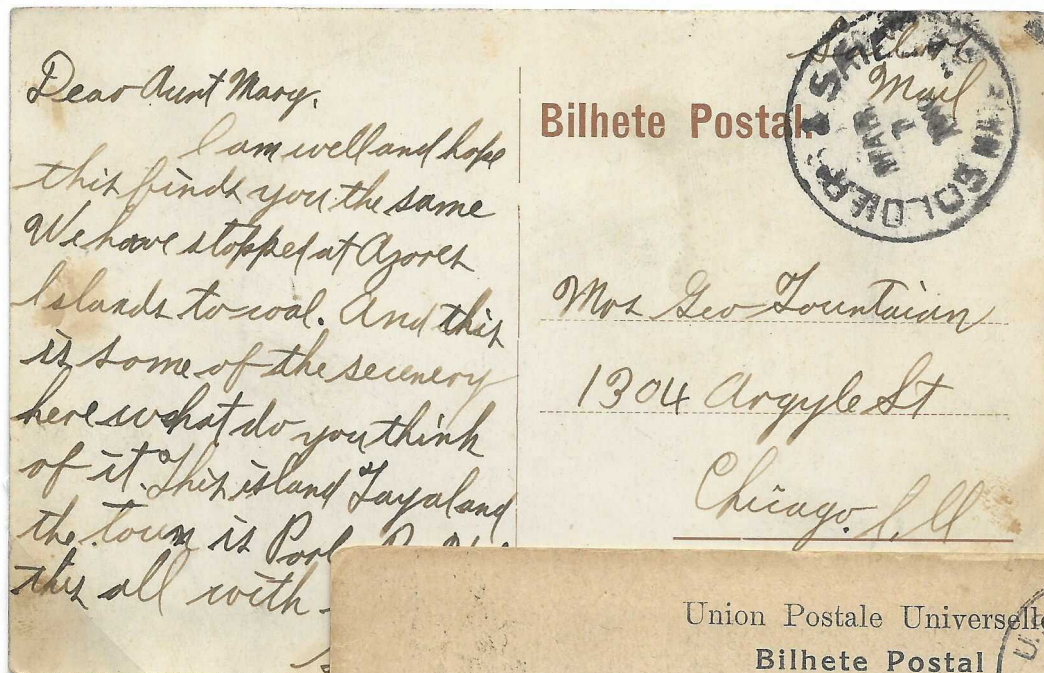 Dear Aunt Mary.
I am well and hope
this finds you the same
We have stopped at Azores
Islands to coal. And this
is some of the scenery
here what do you think
of it. This island Fayal and
the town is
this all with
Bilhete Postal
Mail
MAR
7
Mrs Geo Fountain
1304 Argyle St
Chicago. Ill
Union Postale Universelle
Bilhete Postal
U.S.